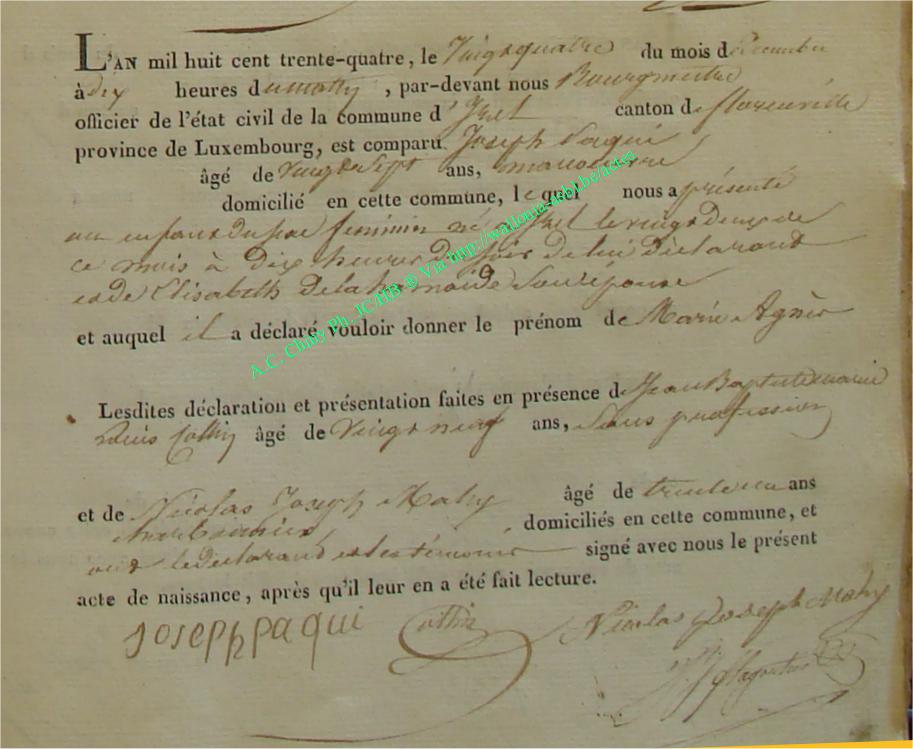 L'AN mil huit cent trente-quatre, le Vingt quatre du mois d decembre
à dix heures du matin, par-devant nous Bourgmestre
officier de l'état civil de la commune d' Izel canton de florenville
province de Luxembourg, est comparu Joseph Paqui
âgé de vingt Sept ans, manoeuvre
domicilié en cette commune, le quel nous a présenté
un enfant du sexe feminin né a Izel le vingt deux de
ce mois à dix heures du soir de lui déclarant
et de Elisabeth Delahemaide Son épouse
et auquel il a déclaré vouloir donner le prénom de Marie Agnès
Lesdites déclaration et présentation faites en présence de Jean Baptiste marie
Louis Collin âgé de Vingt neuf ans, Sans profession
et de Nicolas Joseph Mahy âgé de trente un ans
domiciliés en cette commune, et
ont le déclarant et les témoins signé avec nous le présent
acte de naissance, après qu'il leur en a été fait lecture.
Joseph paqui Collin Nicolas Joseph Mahy
A.C. Chiny Ph. JC HB ® Via http://wallonia-asbl.be/actes